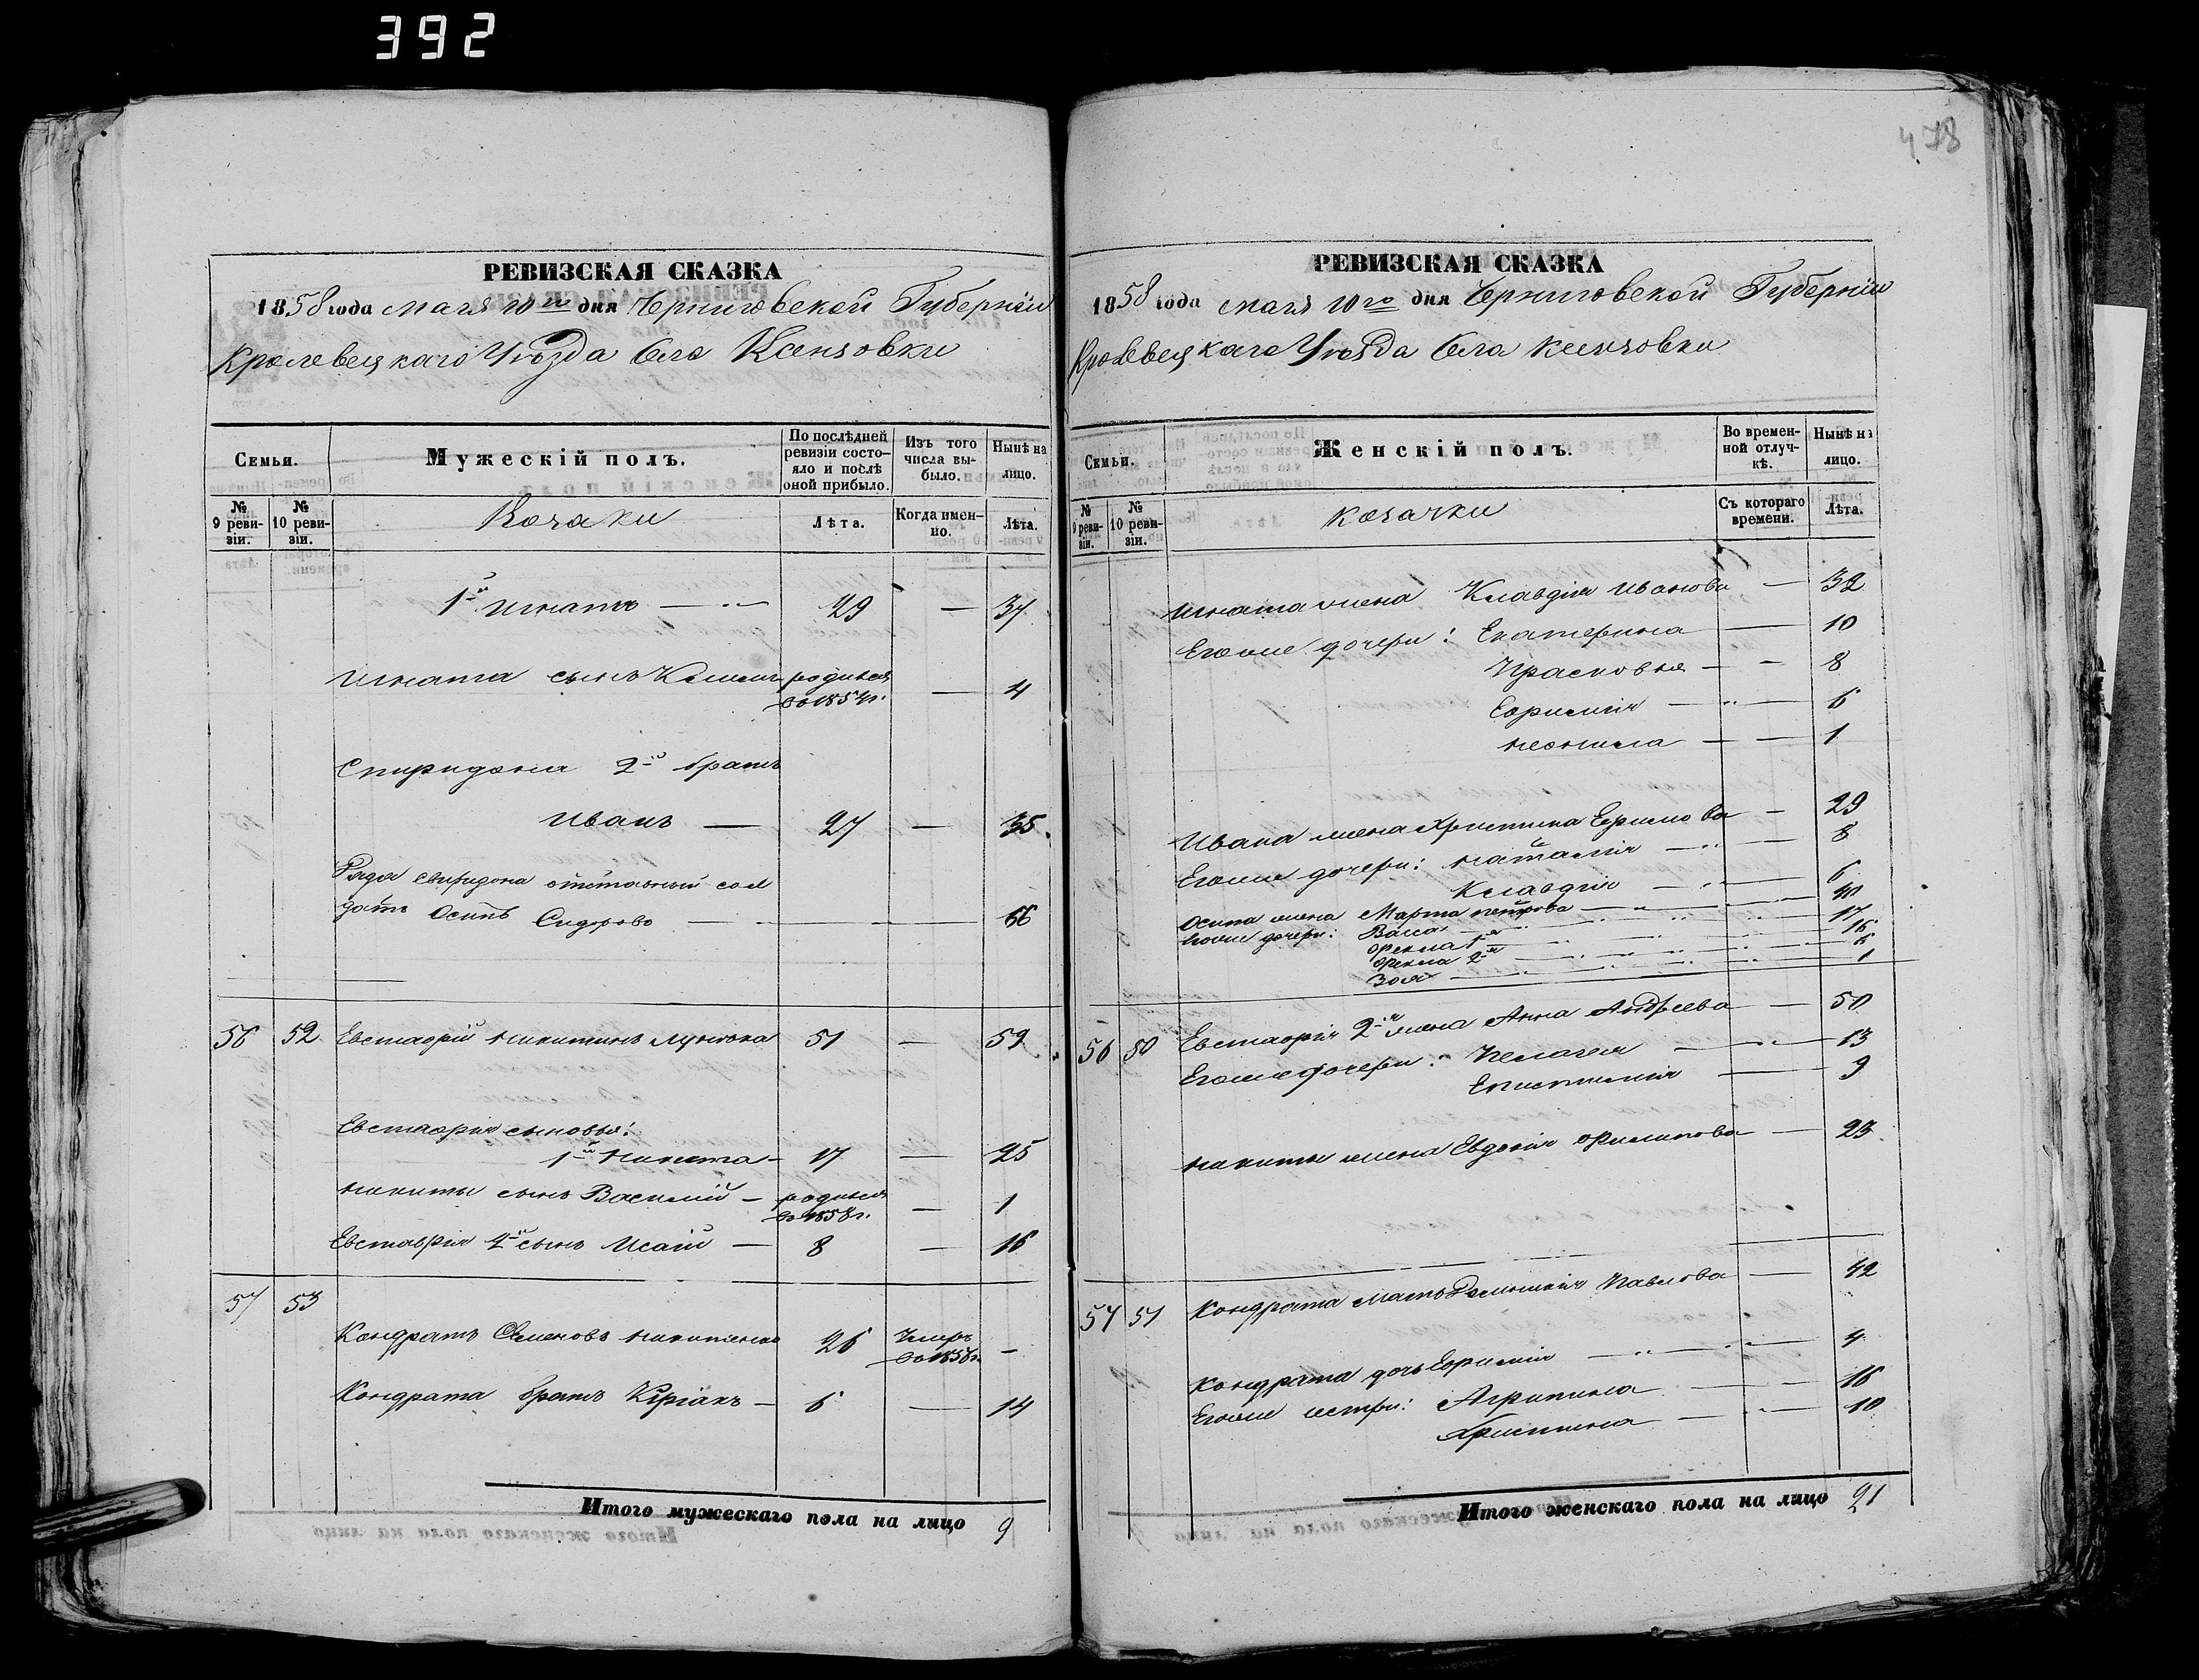 392
478
РЕВИЗСКАЯ СКАЗКА
1858 года мая 10го дня Черниговской Губерніи
Кролевецкаго Уѣзда Села Ксензовки
Семьи.
Мужескій полъ.
По послѣдней ревизіи состояло и послѣ оной прибыло.
Изъ того числа выбыло.
Нынѣ на лицо.
№ 9 ревизіи.
№ 10 ревизіи.
Козаки
Лѣта.
Когда именно.
Лѣта.
1й Игнатъ — 29 — 37
Игната сынъ родился во 1854 г. — 4
Спиридона 2й братъ
Иванъ — 27 — 35.
Спиридона отставный сол
датъ Осипъ Сидоровъ — 66
56 52 Евстафій Никитинъ 51 — 59
Евстафія сыновья:
1й Никита — 17 — 25
Никиты сынъ Василій — родился во 1858 г. — 1
Евстафія 2й сынъ Исаій — 8 — 16
57 53
Кондратъ Семеновъ Никитенко 26 Умеръ во 1856 г. —
Кондрата братъ Киріакъ — 6 — 14
Итого мужескаго пола на лицо 9
РЕВИЗСКАЯ СКАЗКА
1858 года мая 10го дня Черниговской Губерніи
Кролевецкаго Уѣзда Села Ксензовки
Семьи.
Женскій полъ.
Во временной отлучкѣ.
Нынѣ на лицо.
№ 9 ревизіи.
№ 10 ревизіи.
козачки
Съ котораго времени.
Лѣта.
Игната жена Клавдія Иванова — 32
Его же дочери: Екатерина — 10
Прасковья — 8
Ефимія — 6
Неонила — 1
Ивана жена Христина Ефимова — 29
Его же дочери: Наталія — 8
Клавдія — 6
Осипа жена Марта Петрова — 40
Его же дочери: Васса — 17
Фекла 1я — 15
Фекла 2я — 6
Зоя — 1
56 50 Евстафія 2я жена Анна Андреева — 50
Его же дочери: Пелагея — 13
Епистимія — 9
Никиты жена Евдокія Филипова — 23
57 51 Кондрата мать Павлова — 42
Кондрата дочь Ефимія — 4
Его же сестры: Агрипина — 16
Христина — 10
Итого женскаго пола на лицо 21